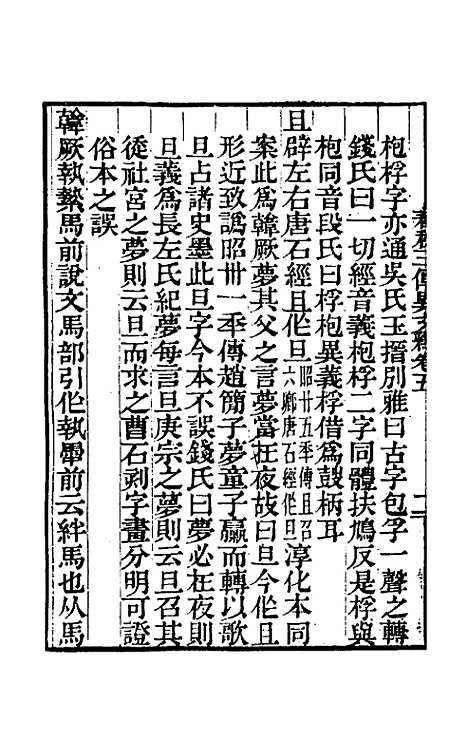 春秋三傳異文釋卷五
枹桴字亦通吳氏玉搢別雅曰古字包孚一聲之轉
錢氏曰一切經音義枹桴二字同體扶鳩反是桴與
枹同音段氏曰桴枹異義桴借爲鼓柄耳
且辟左右唐石經且作旦昭廿五年傳且召六鄉唐石經作旦淳化本同
案此爲韓厥夢其父之言夢當在夜故曰旦今作且
形近致譌昭卅一年傳趙簡子夢童子羸而轉以歌
旦占諸史墨此旦字今本不誤錢氏曰夢必在夜則
旦義爲長左氏紀夢每言旦庚宗之夢則云旦召其
徒社宮之夢則云旦而求之曹石刻字畫分明可證
俗本之誤
韓厥執縶馬前說文馬部引作執馽前云絆馬也从馬